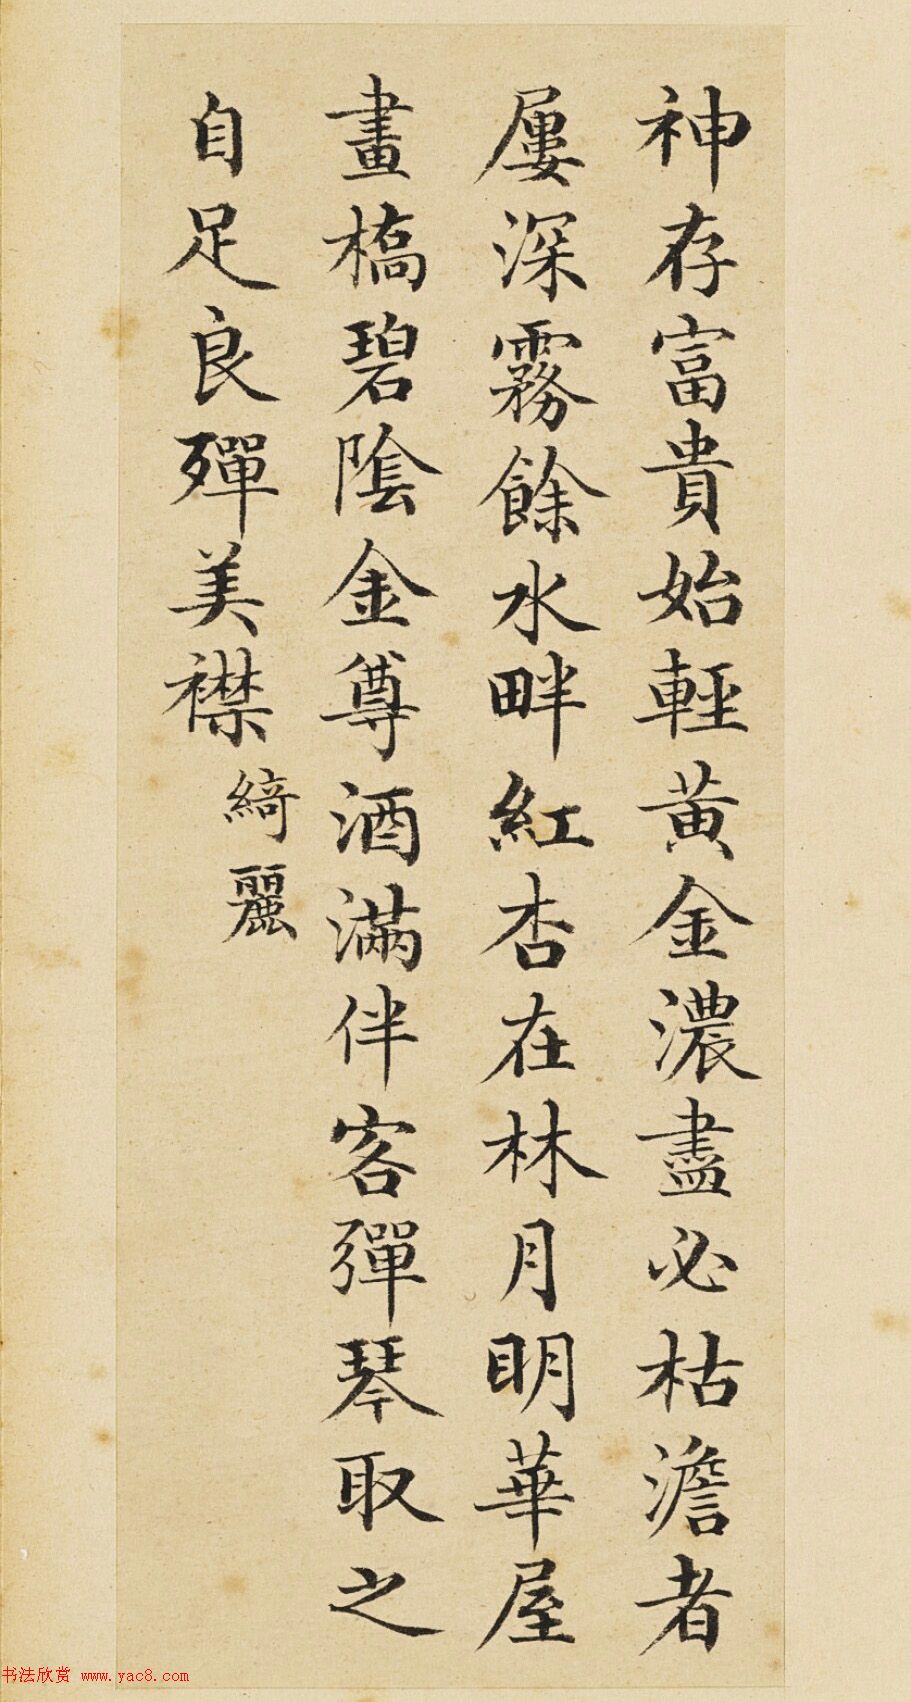 神存富貴始輕黃金濃盡必枯澹者
屢深霧餘水畔紅杏在林月明華屋
畫橋碧陰金尊酒滿伴客彈琴取之
自足良殫美襟
綺麗
书法欣赏 www.yac8.com